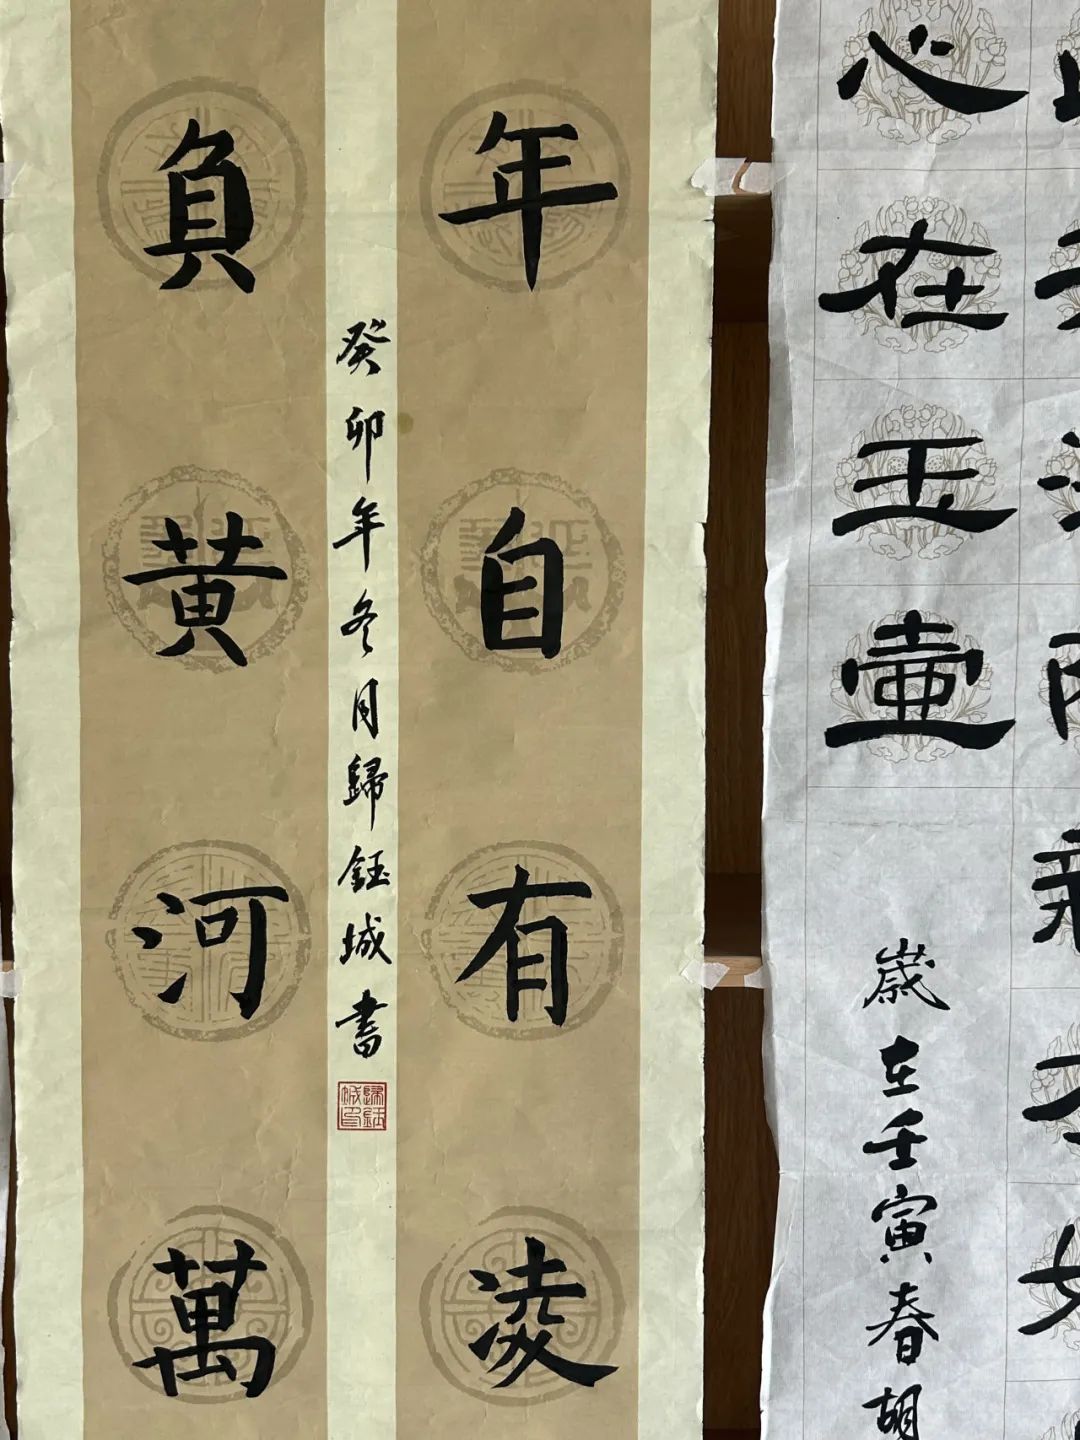 心在玉壺
歲在壬寅春胡
年自有凌
癸卯年冬月歸鈺城書
歸鈺城印
負黄河萬